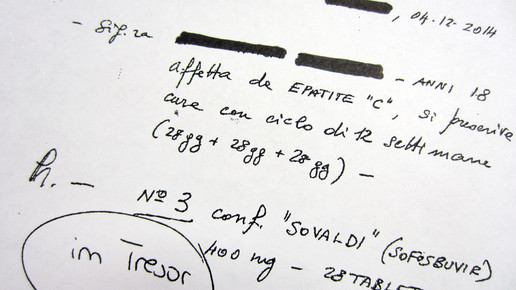 , 04.12.2014
- Sig.ra - ANNI 18
affetta da EPATITE "C", si prescrive
cura con ciclo di 12 settimane
(28gg + 28gg + 28gg) -
R. - Nº 3 conf. "SOVALDI" (SOFOSBUVIR)
400 mg - 28 TABLET
im Tresor